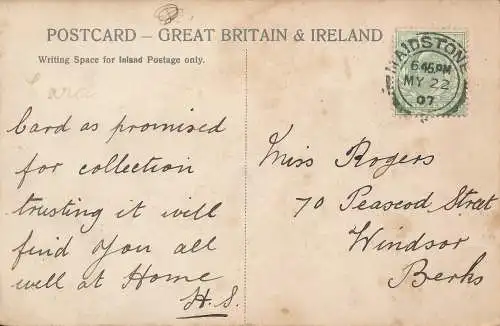 POSTCARD – GREAT BRITAIN & IRELAND
Writing Space for Inland Postage only.
MAIDSTONE
6 45 PM
MY 22
07
Card
Card as promised
for collection
trusting it will
find you all
well at Home
H.S.
Miss Rogers
70 Peascod Street
Windsor
Berks